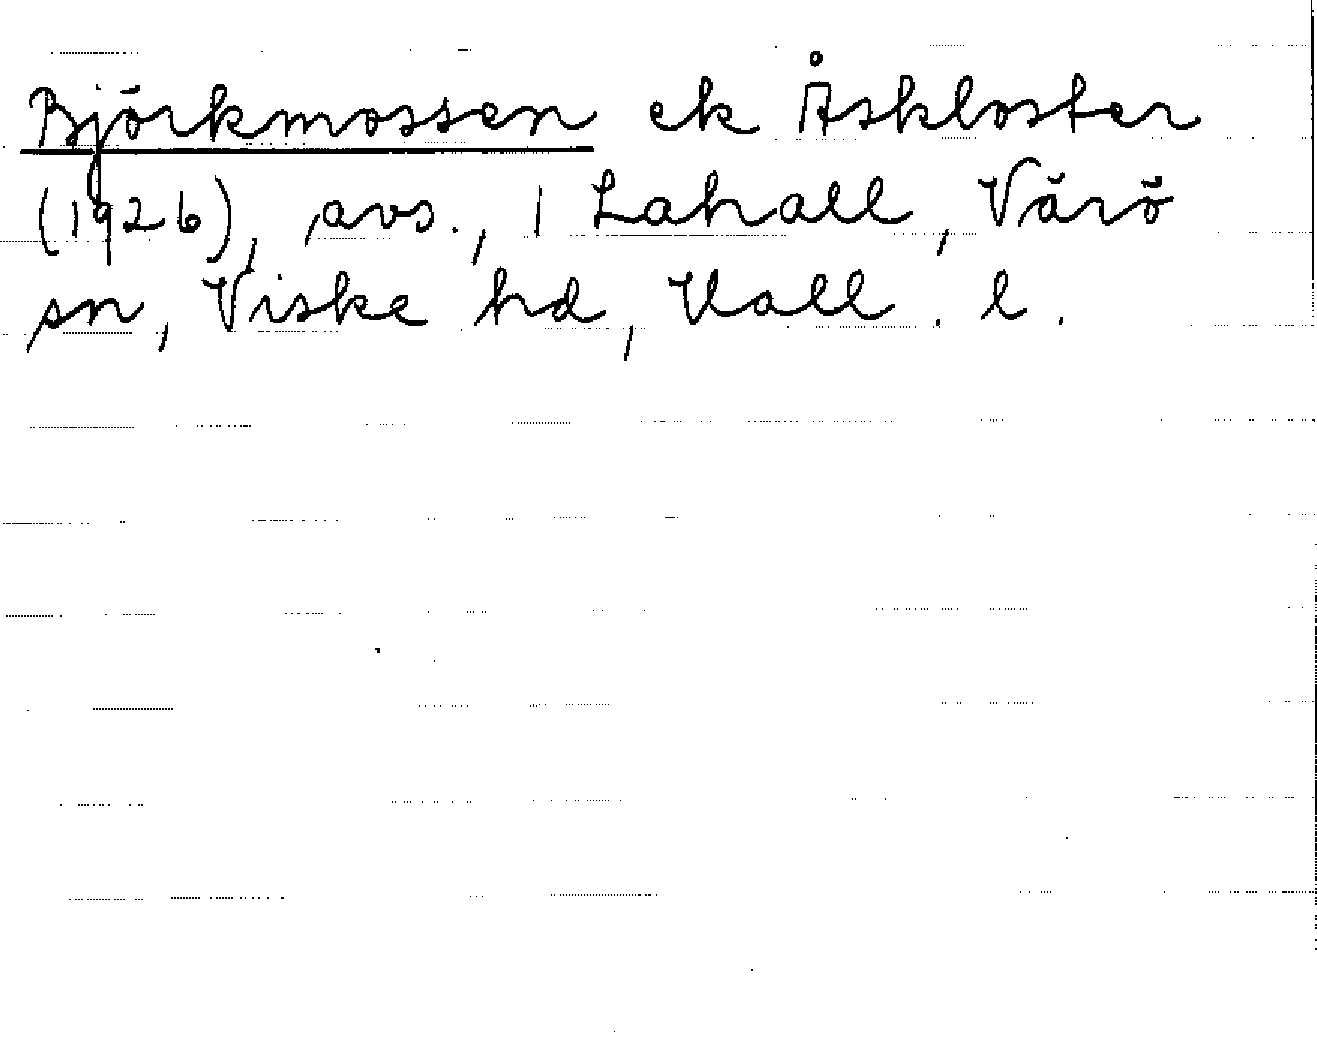 Björkmossen ek Åskloster
(1926), avs., 1 Lahall, Värö
sn, Viske hd, Hall. l.